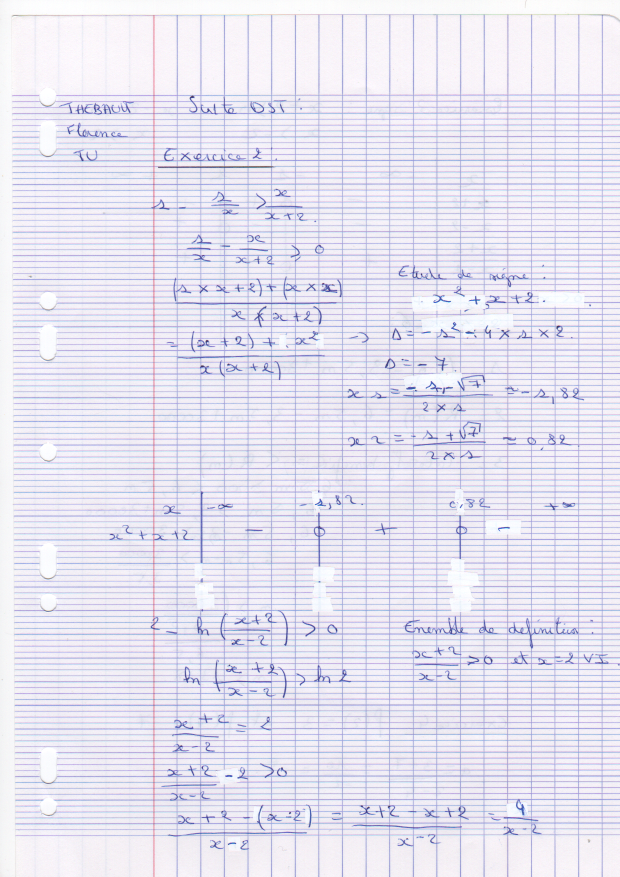 THEBAULT Suite DST :
Florence
TU Exercice 2 :
1 - 1/x > x/(x+2).
1/x - x/(x+2) > 0
((1 × x+2) + (x × x))/(x (x+2))
= ((x+2) + x²)/(x(x+2)) →
Etude de signe :
x² + x + 2.
Δ = -1² - 4 × 1 × 2.
Δ = -7.
x 1 = (-1 - √7)/(2 × 1) ≈ -1,82
x 2 = (-1 + √7)/(2 × 1) ≈ 0,82
x | -∞ -1,82. 0,82 +∞
x² + x + 2 | - 0 + 0 -
2 - ln ((x+2)/(x-2)) > 0
ln ((x+2)/(x-2)) > ln 2
(x+2)/(x-2) = 2
(x+2)/(x-2) - 2 > 0
(x+2 - (x-2))/(x-2) = (x+2 - x+2)/(x-2) = 4/(x-2)
Enemble de definition :
(x+2)/(x-2) > 0 et x=2 VI.